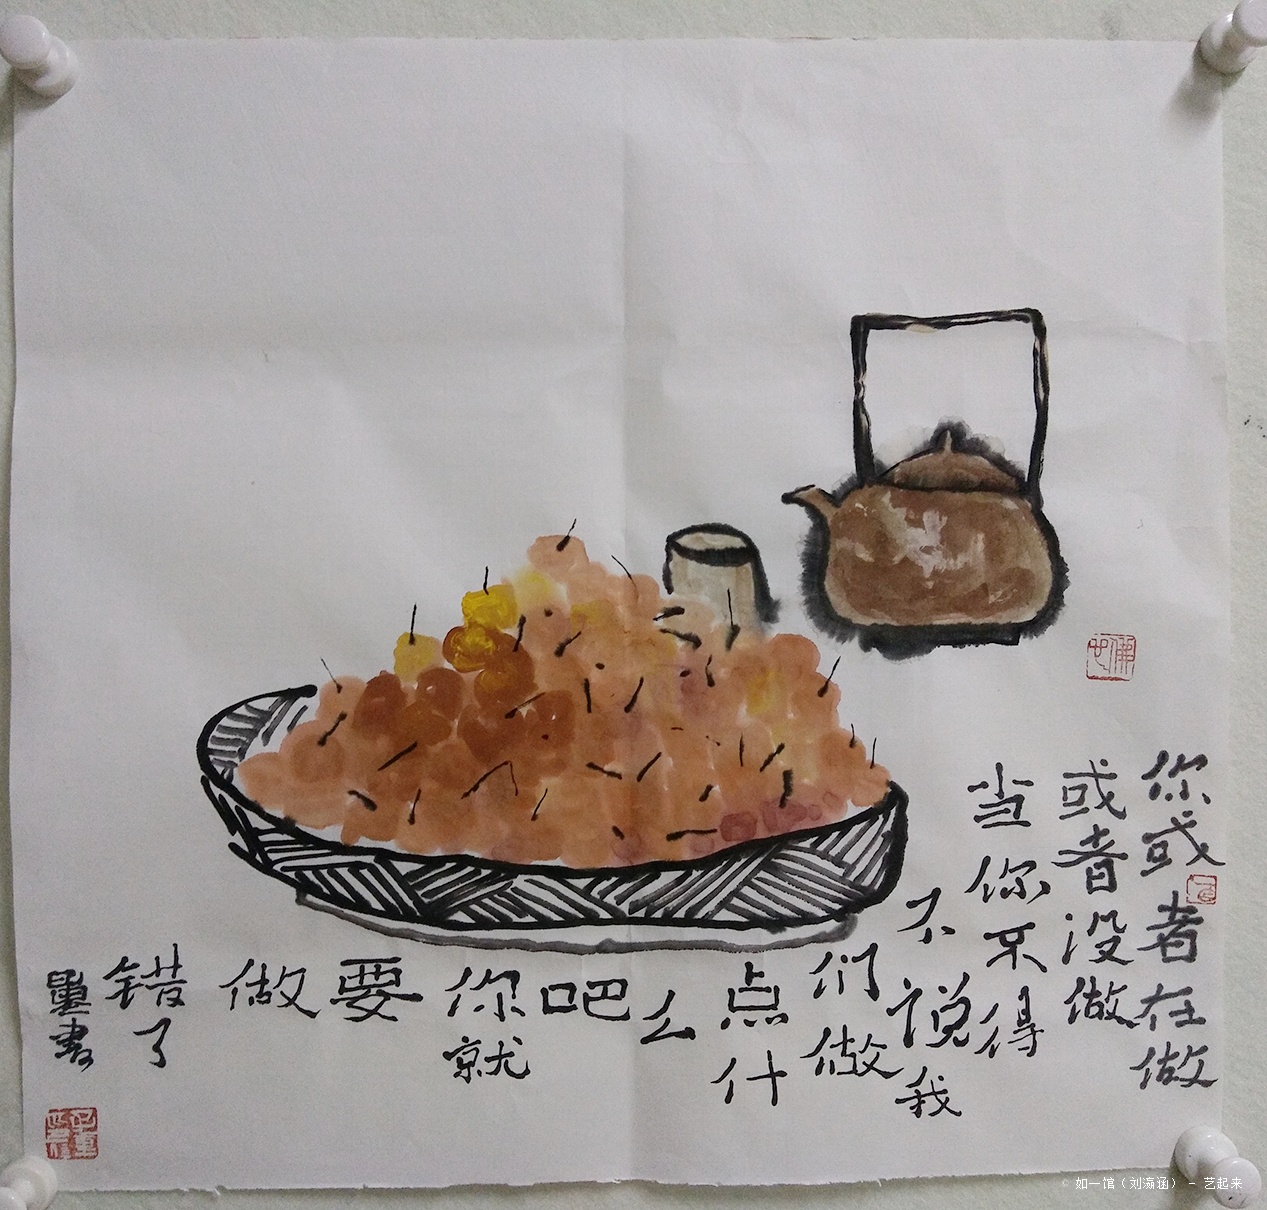 你或者在做
或者没做
当你不得
不说我
们做
点什
么
吧
你就
要
做
错了
墨书
© 如一馆（刘瀛涵） - 艺起来